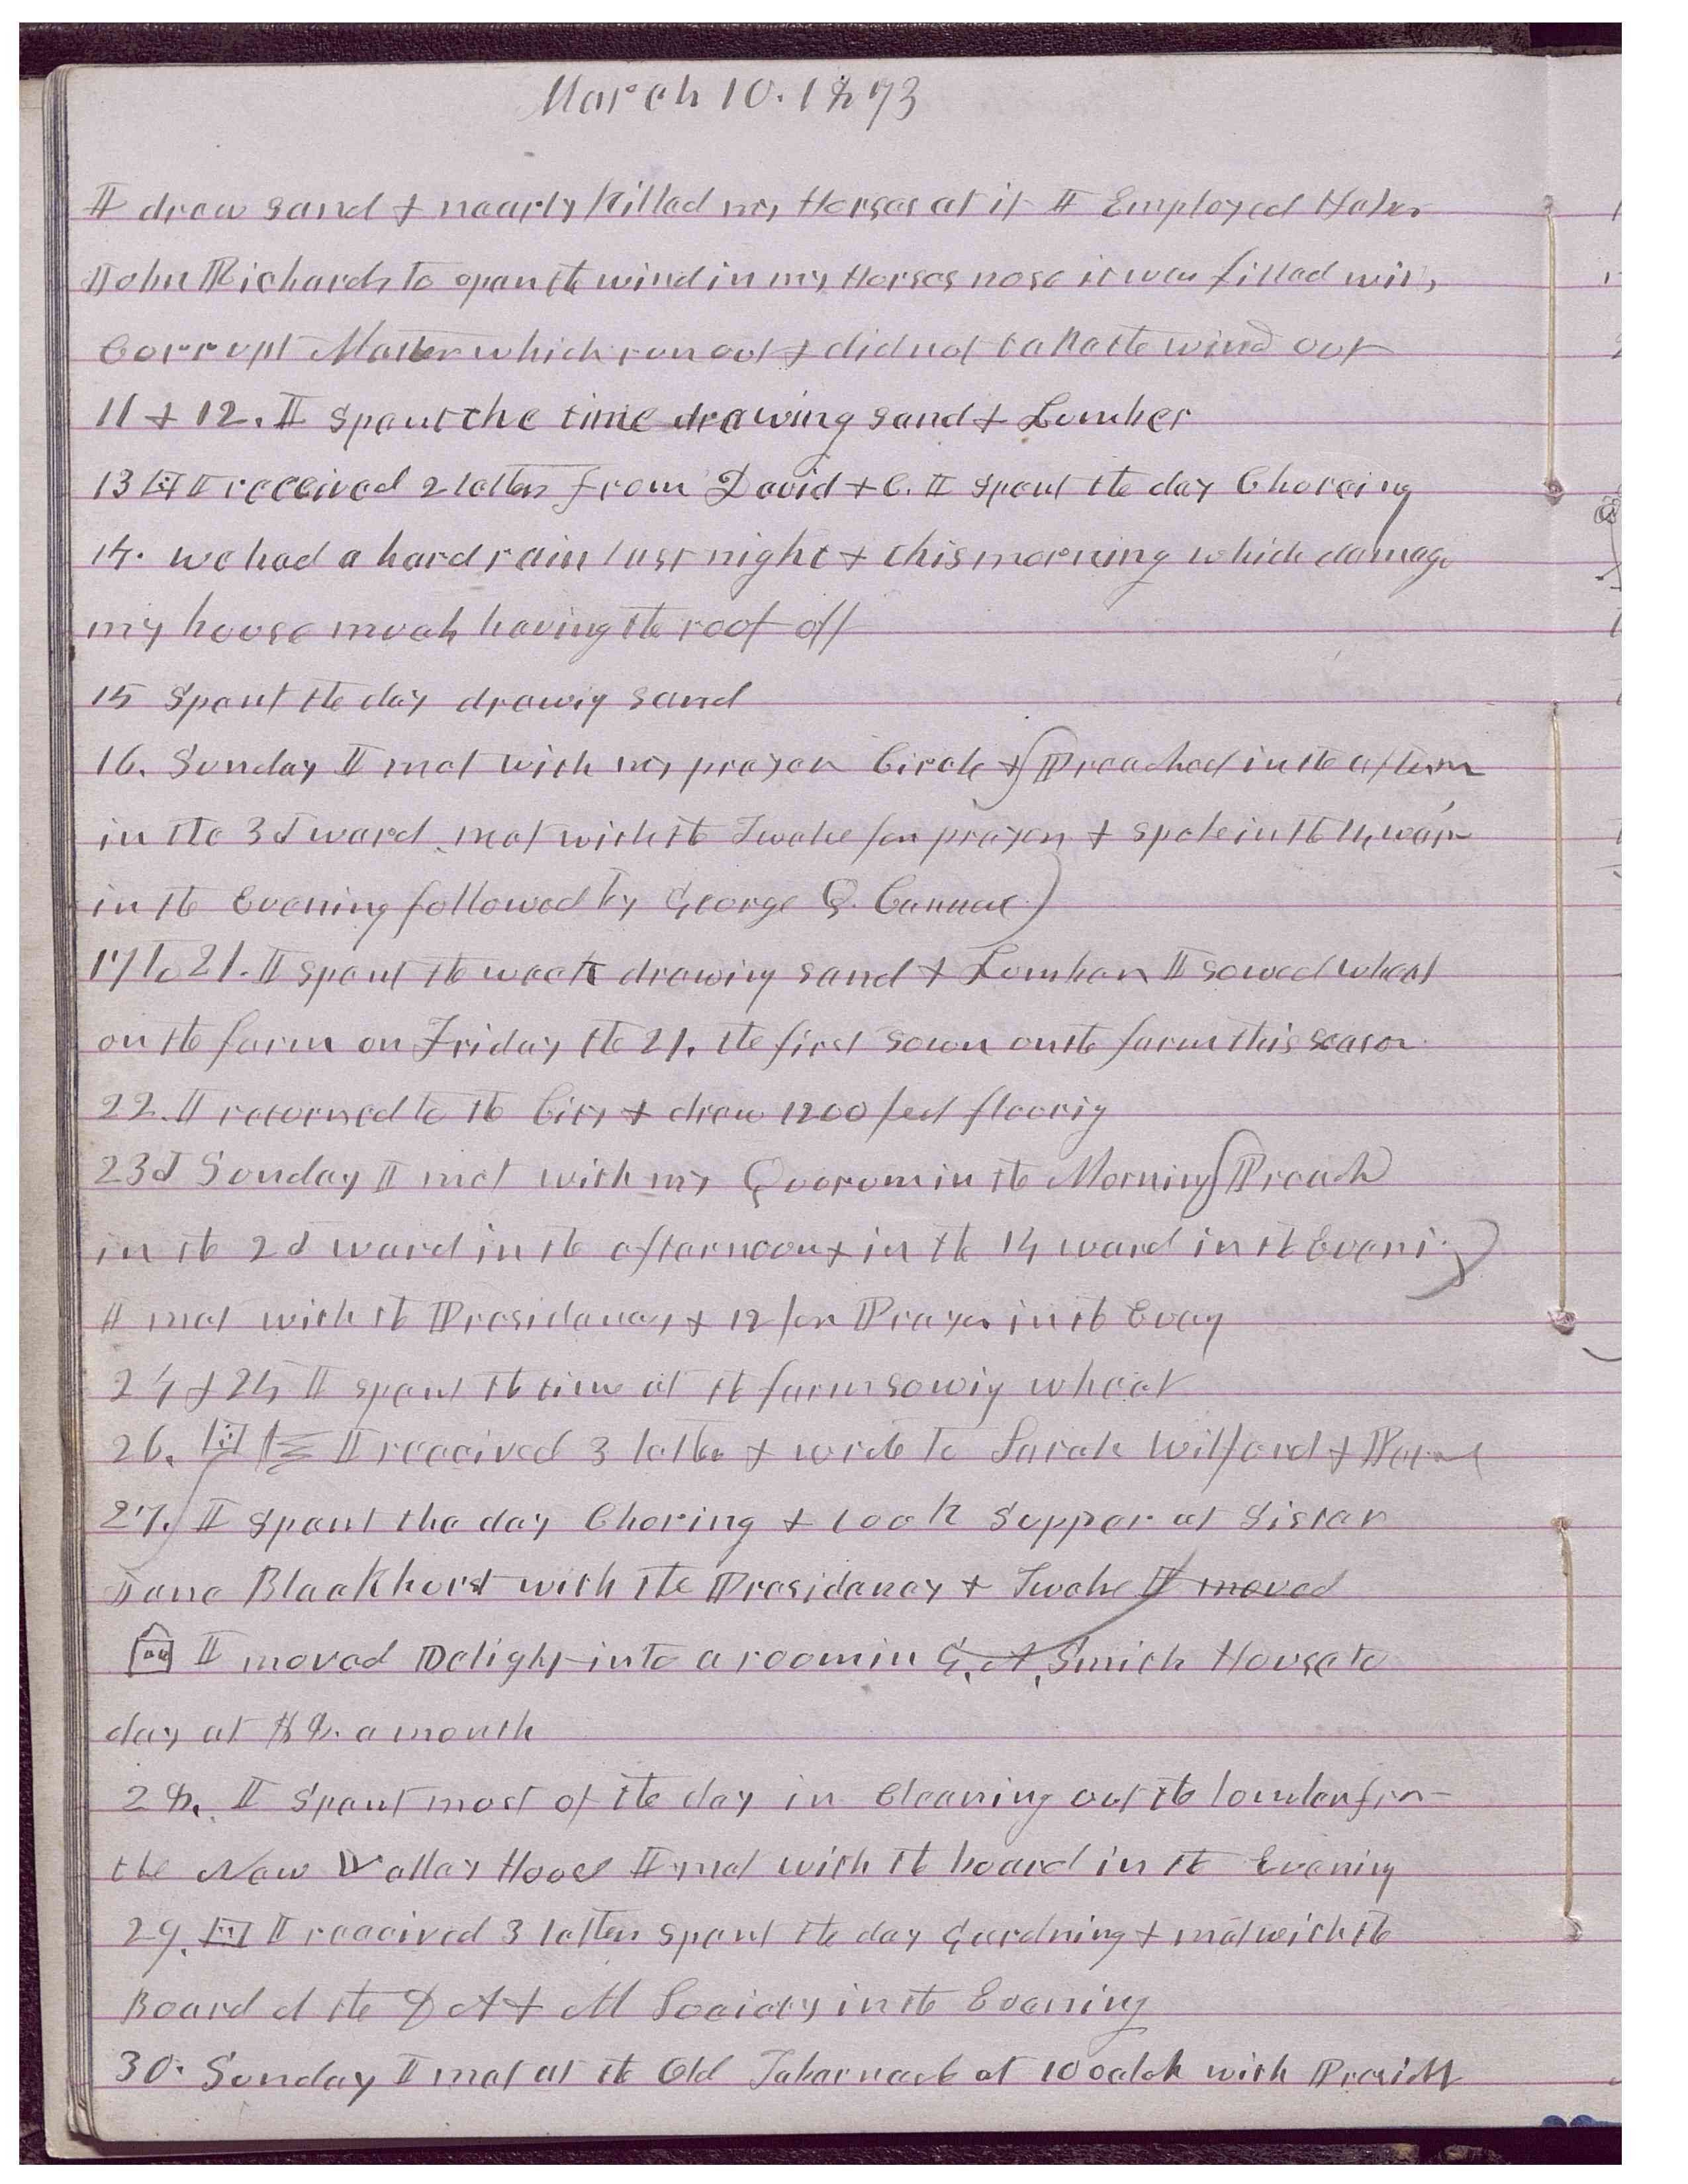 March 10. 1873
I drew sand & nearly killed my Horses at it I Employed
John Richards to open the wind in my Horses nose it was filled with
Corrupt Matter which run out & did not let the wind out
11 & 12. I spent the time drawing sand & Lumber
13 I received 2 letters from David & C. I spent the day Choreing
14. we had a hard rain last night & this morning which damage
my house much having the roof off
15 Spent the day drawig sand
16. Sunday I met with my prayer Circle & Preached in the aftern
in the 3d ward met with the Twelve for prayer & spoke in the 14 ward
in the Evening followed by George Q. Cannon)
17 to 21. I spent the week drawing sand & Lumber I sowed wheat
on the farm on Friday the 21. the first sown on the farm this season
22. I returned to the City & drew 1200 feet floorig
23d Sunday I met with my Quorum in the Morning (Preach
in the 2d ward in the afternoon & in the 14 ward in the Evening)
I met with the Presidency & 12 for Prayer in the Eveg
24 & 25 I spent the time at the farm sowig wheat
26. I received 3 letters & wrote to Sarah Wilford &
27. I spent the day Choring & took Supper at Sister
Jane Blackhurst with the Presidency & Twelve I moved
I moved Delight into a room in G. A. Smith House to
day at $8. a month
28. I spent most of the day in Cleaning out the lumber from
the New Valley House I met with the board in the Evening
29. I received 3 letters spent the day Gardning & met with the
Board of the D A & M Society in the Evening
30. Sunday I met at the Old Tabernacle at 10 oclok with Presidt